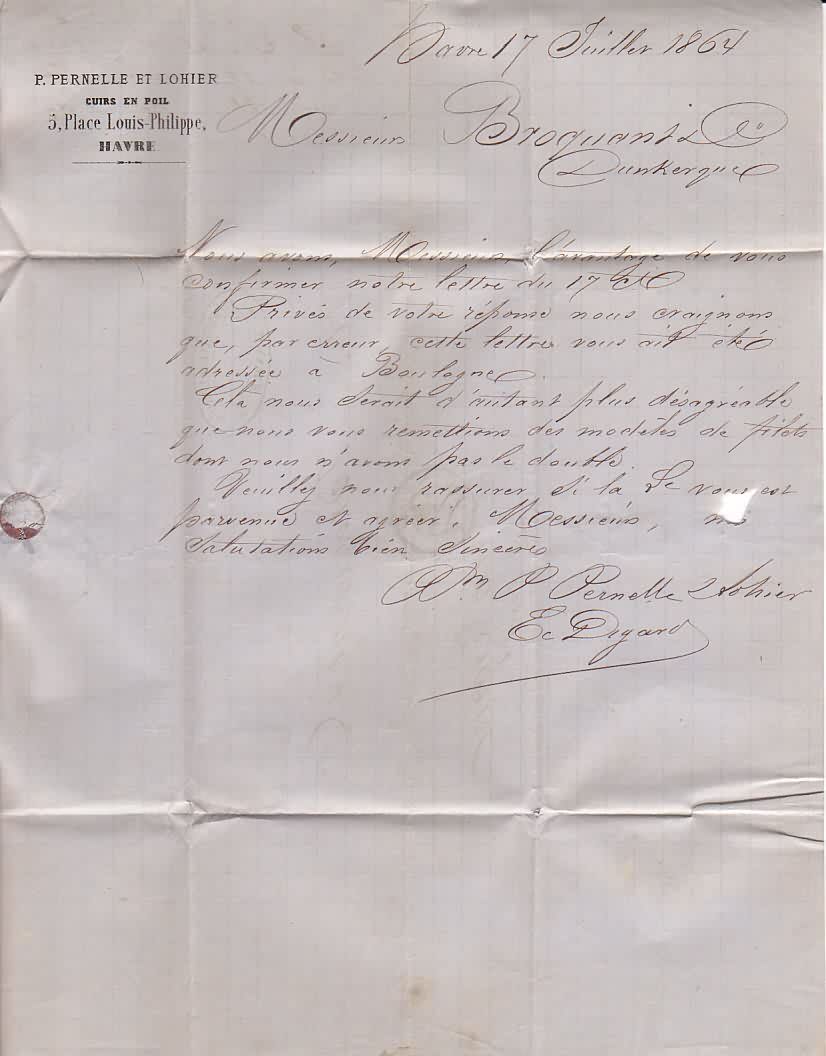 Havre 17 Juillet 1864
P. PERNELLE ET LOHIER
CUIRS EN POIL
5, Place Louis-Philippe,
HAVRE
Messieurs Broquant & Cie
Dunkerque
Nous avons, Messieurs, l'avantage de vous
confirmer notre lettre du 17 Ct
Privés de votre réponse nous craignons
que, par erreur, cette lettre vous ait été
adressée à Boulogne.
Cela nous serait d'autant plus désagréable
que nous vous remettions des modèles de filets
dont nous n'avons pas le double.
Veuillez nous rassurer si la vous est
parvenue et agréer, Messieurs, nos
Salutations bien Sincères
P Pernelle & Lohier
Ec Dygard